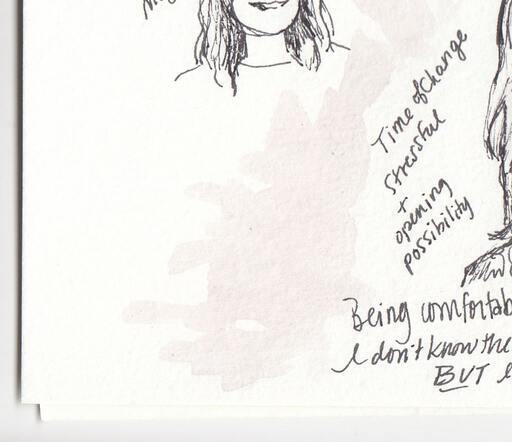 Time of Change
Stressful
+
opening
possibility
Being comfortab
I don't know the
BUT I